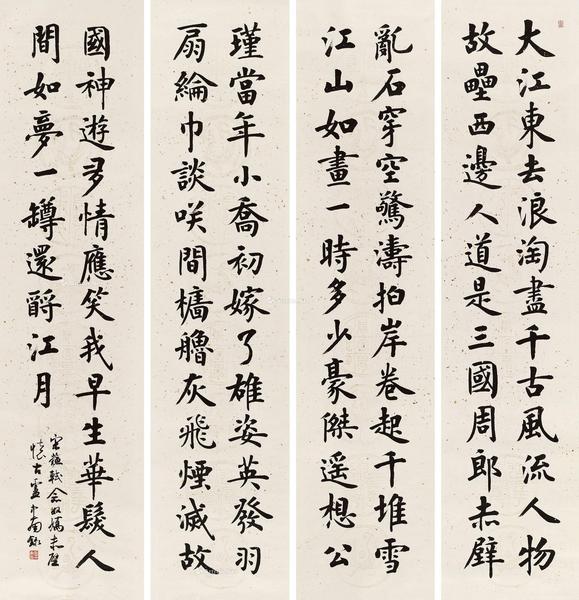 大江東去浪淘盡千古風流人物
故壘西邊人道是三國周郎赤壁
亂石穿空驚濤拍岸卷起千堆雪
江山如畫一時多少豪傑遥想公
瑾當年小喬初嫁了雄姿英發羽
扇綸巾談咲間檣艣灰飛煙滅故
國神遊多情應笑我早生華髮人
間如夢一罇還酹江月
宋蘇軾念奴嬌赤壁
懷古